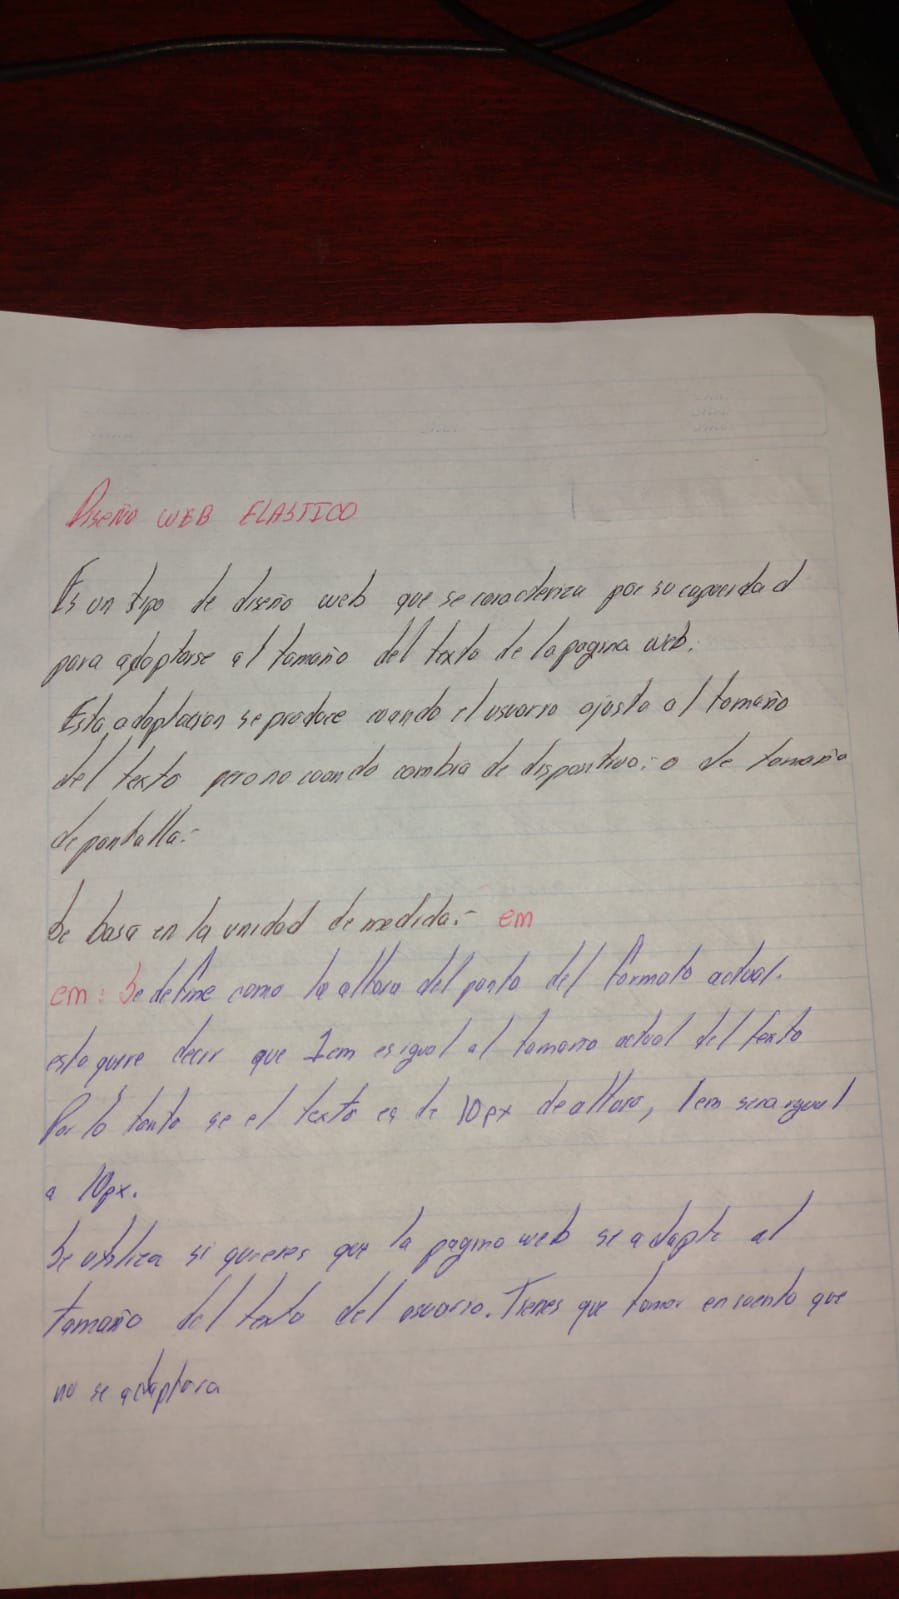 Diseño WEB ELASTICO
Es un tipo de diseño web que se caracteriza por su capacidad
para adaptarse al tamaño del texto de la pagina web.
Esta adaptacion se produce cuando el usuario ajusta al tamaño
del texto pero no cuando cambia de dispositivo.- o de tamaño
de pantalla.-
Se basa en la unidad de medida.- em
em: Se define como la altura del punto del formato actual.
esto quire decir que 1em es igual al tamaño actual del texto
Por lo tanto se el texto es de 10px de altura, 1em sera igual
a 10px.
Se utiliza si quieres que la pagina web se adapte al
tamaño del texto del usuario. Tienes que tomar en cuenta que
no se adaptara